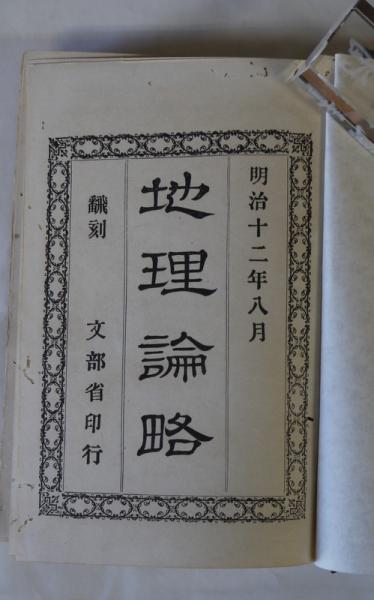 明治十二年八月
地理論略
飜刻　文部省印行